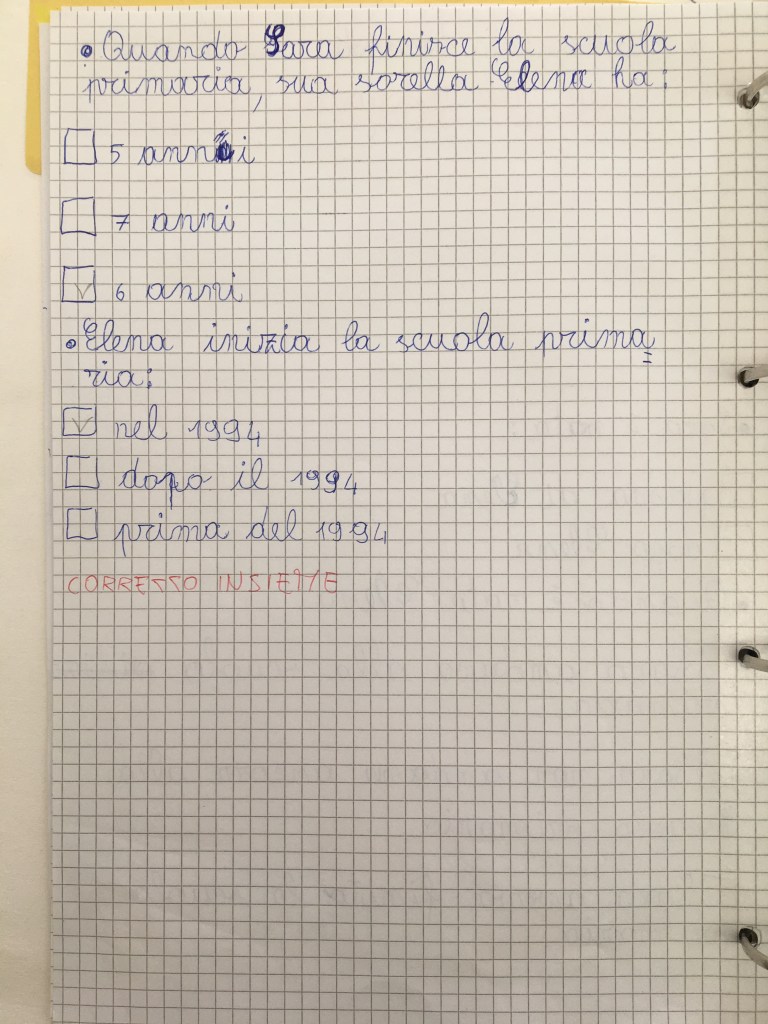 • Quando Sara finisce la scuola
primaria, sua sorella Elena ha:
5 anni
7 anni
6 anni
• Elena inizia la scuola prima=
ria:
nel 1994
dopo il 1994
prima del 1994
CORRETTO INSIEME